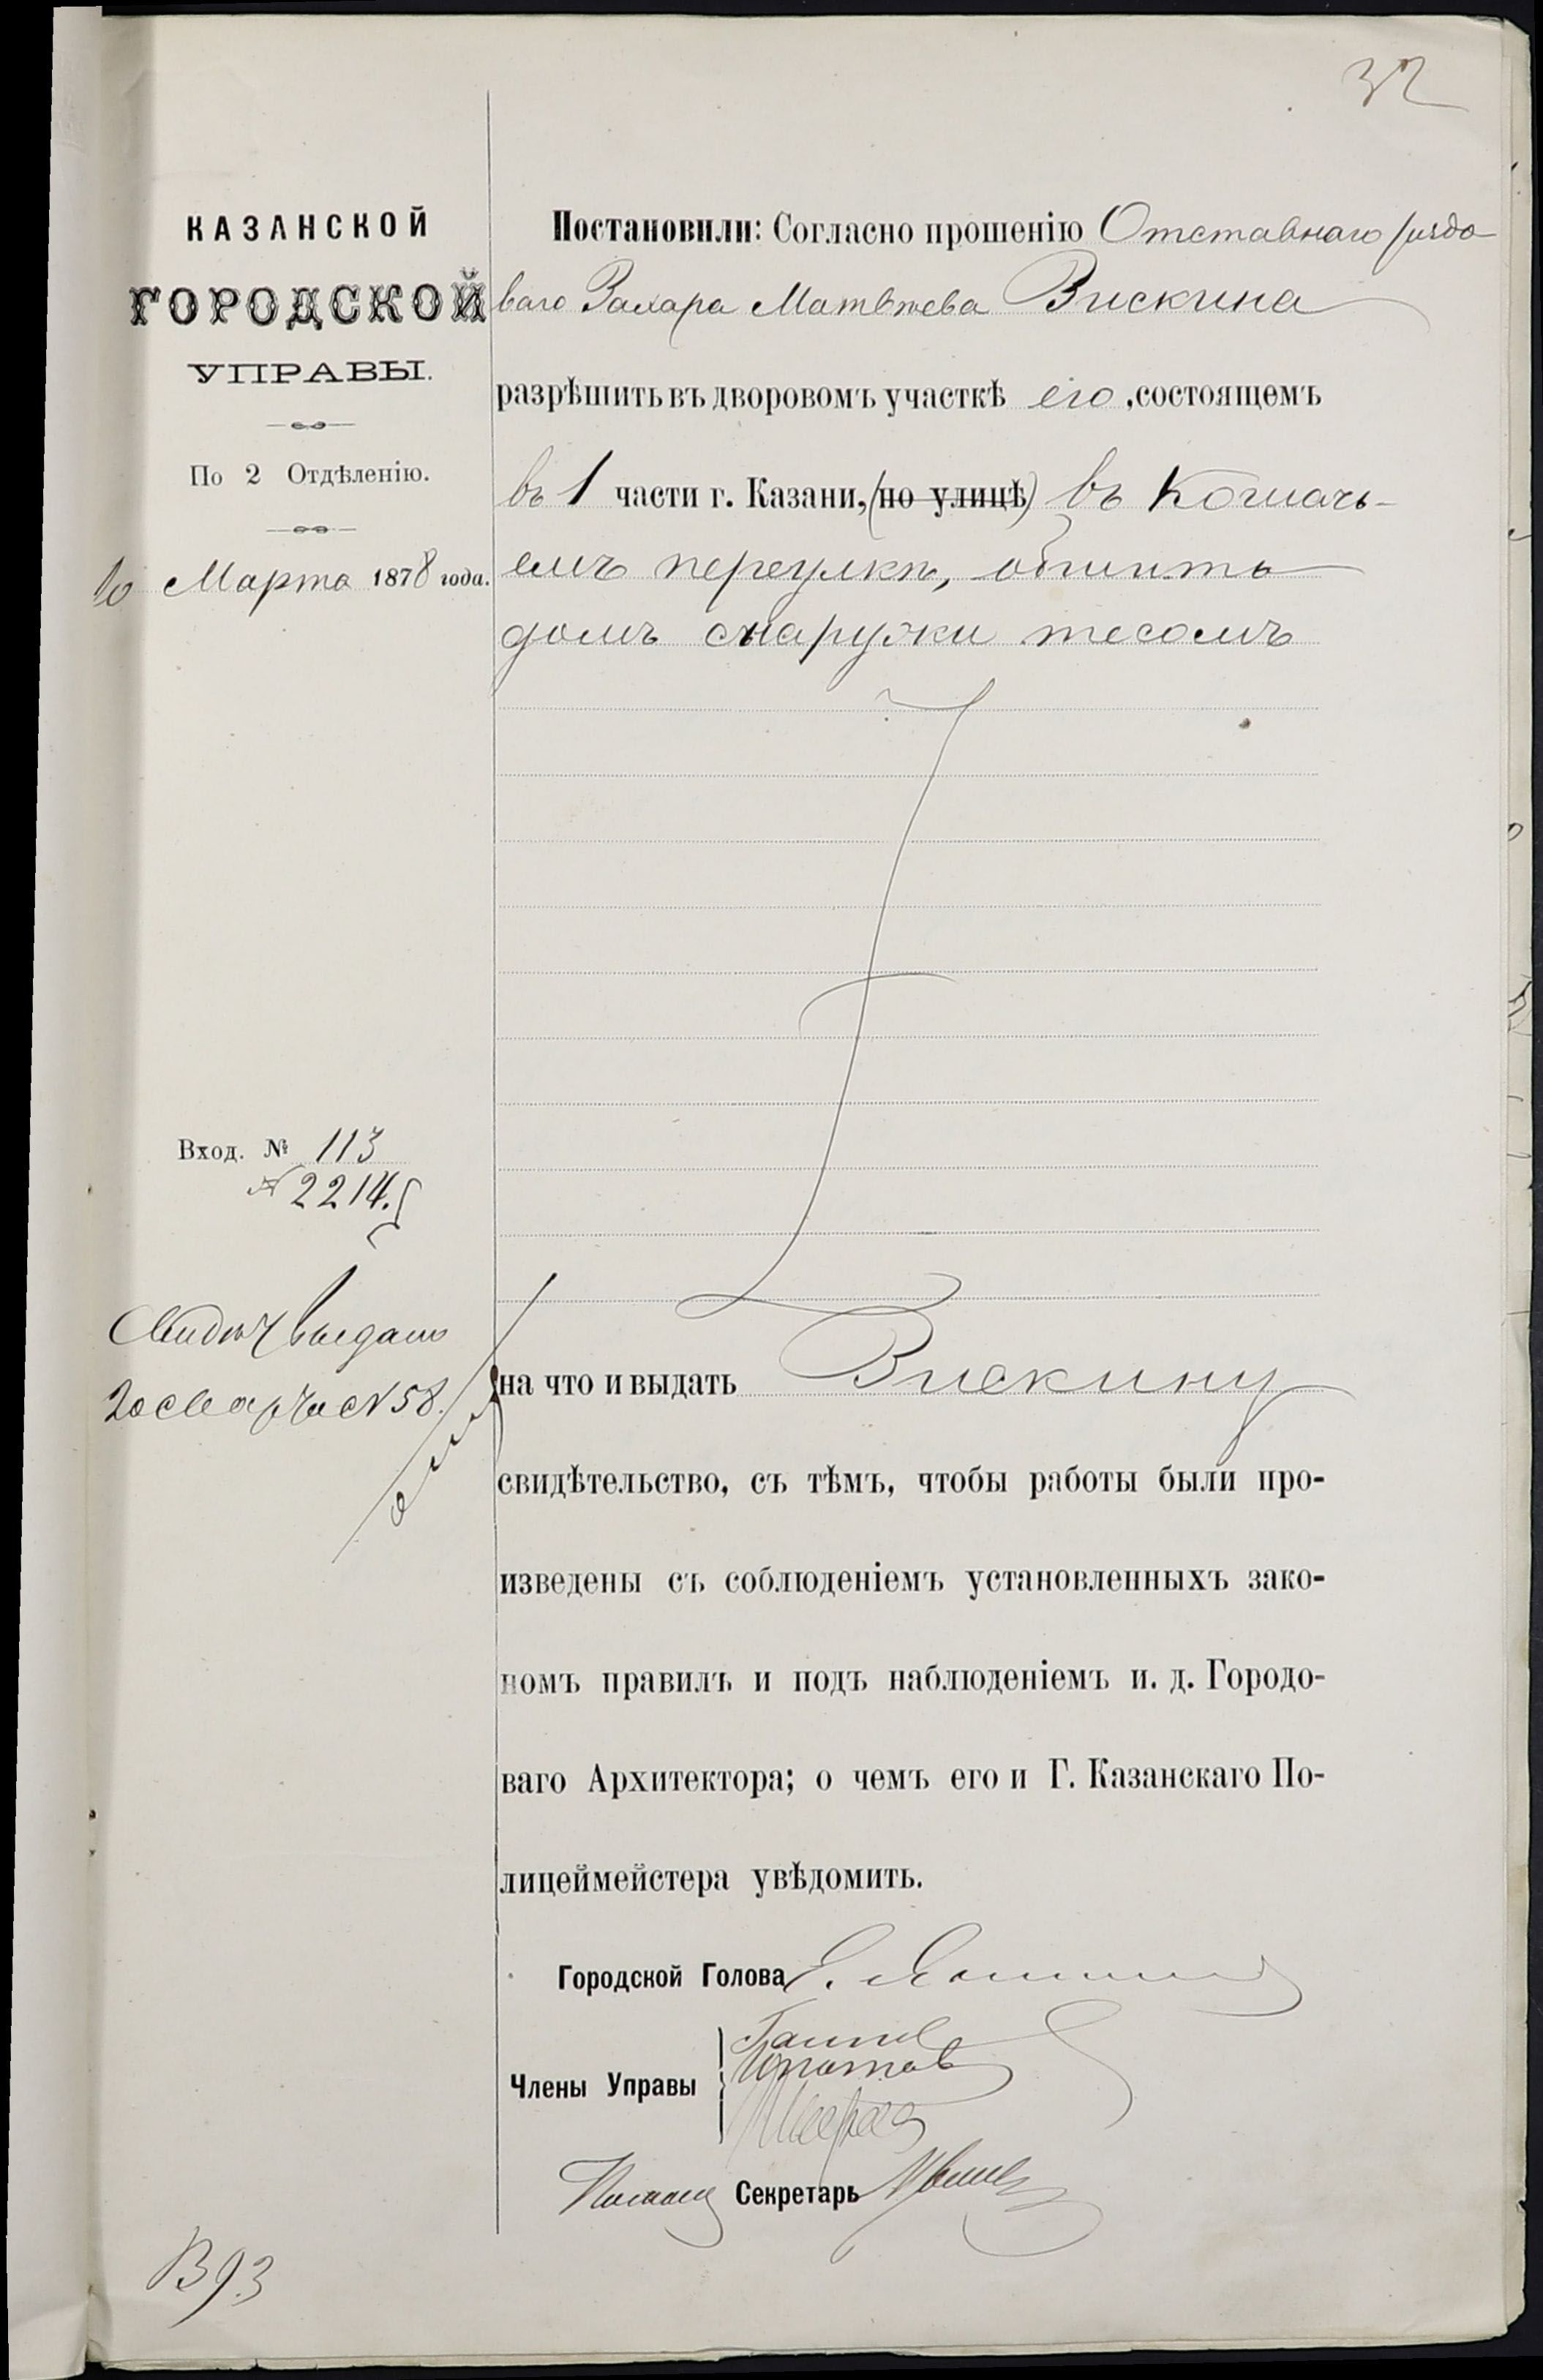 32
КАЗАНСКОЙ
ГОРОДСКОЙ
УПРАВЫ.
По 2 Отдѣленію.
10 Марта 1878 года.
Вход. № 113
№ 2214.
Свидѣт выдано
20 Марта № 58.
Постановили: Согласно прошенію Отставнаго рядо-
ваго Захара Матвѣева Вискина
разрѣшить въ дворовомъ участкѣ его, состоящемъ
въ 1 части г. Казани, (по улицѣ) въ Кошачь-
емъ переулкѣ, обшить
домъ снаружи тесомъ
на что и выдать Вискину
свидѣтельство, съ тѣмъ, чтобы работы были про-
изведены съ соблюденіемъ установленныхъ зако-
номъ правилъ и подъ наблюденіемъ и. д. Городо-
ваго Архитектора; о чемъ его и Г. Казанскаго По-
лицеймейстера увѣдомить.
Городской Голова
Члены Управы
Ипатов
Секретарь
В 93